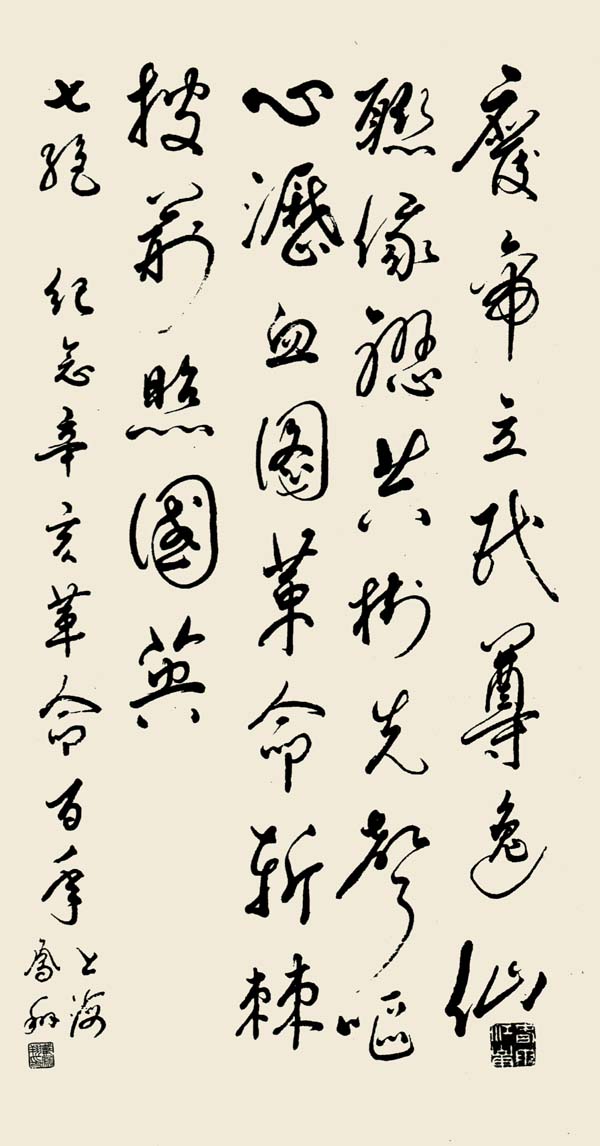 廢帝立民尊逸仙
聯俄聯共樹先聲嘔
心瀝血圖革命斬棘
披荊照國英
七絕 紀念辛亥革命百年
上海